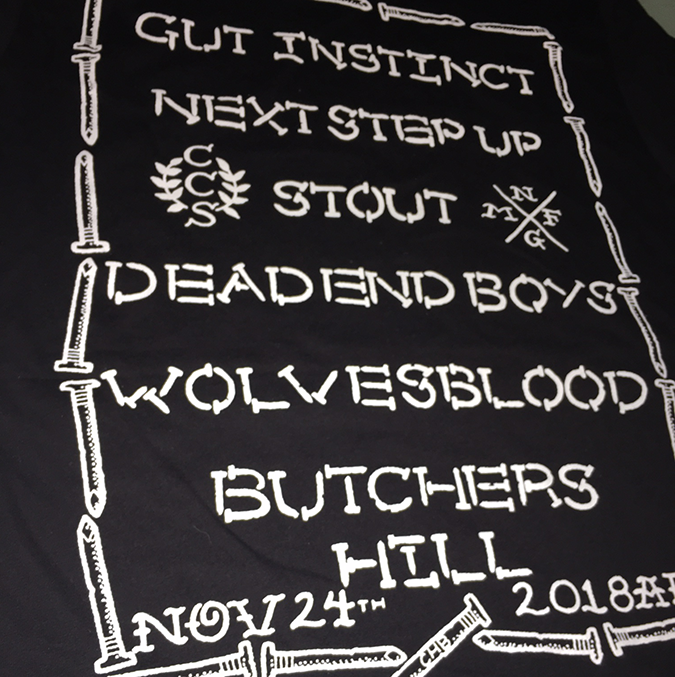 GUT INSTINCT
NEXT STEP UP
CCS STOUT MNFG
DEAD END BOYS
WOLVESBLOOD
BUTCHERS
HILL
NOV 24TH 2018
CHB